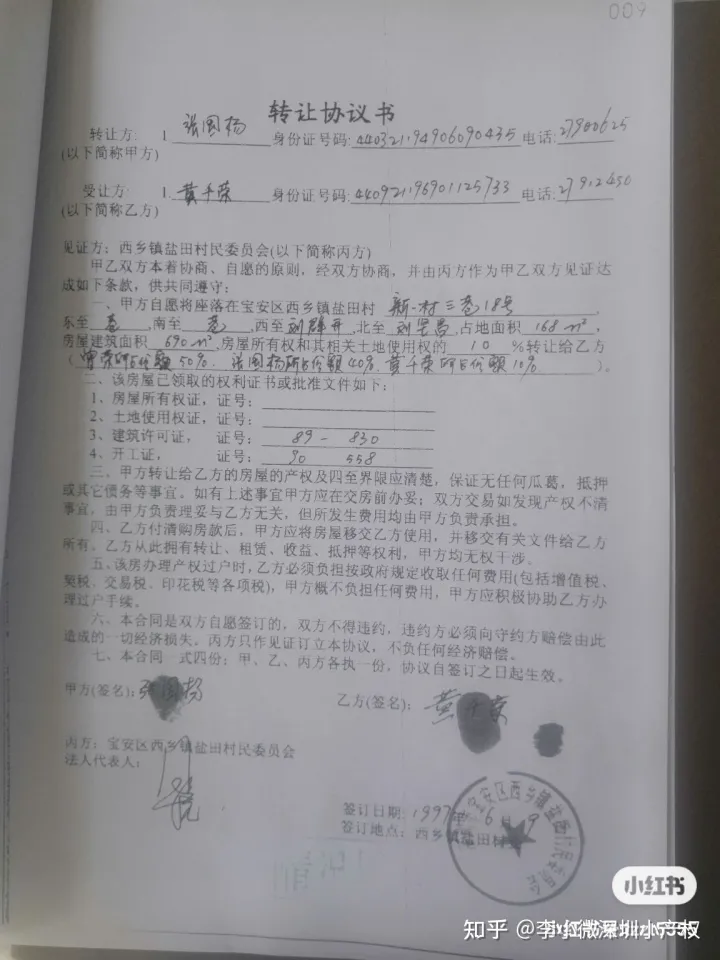 009
转让协议书
转让方: 1. 张国杨 身份证号码: 440321194906090435 电话: 27900625
(以下简称甲方)
受让方: 1. 黄千荣 身份证号码: 440921196901125733 电话: 27912450
(以下简称乙方)
见证方：西乡镇盐田村民委员会(以下简称丙方)
甲乙双方本着协商、自愿的原则，经双方协商，并由丙方作为甲乙双方见证达
成如下条款，供共同遵守：
一、甲方自愿将座落在宝安区西乡镇盐田村 新一村三巷18号
东至 巷 ,南至 巷 ,西至 刘群开 ,北至 ,占地面积 168m²,
房屋建筑面积 690m²,房屋所有权和其相关土地使用权的 10 %转让给乙方
( 所占份额50%. 张国杨所占份额40%. 黄千荣所占份额10% )。
二、该房屋已领取的权利证书或批准文件如下：
1、房屋所有权证，证号：
2、土地使用权证，证号：
3、建筑许可证， 证号： 89 - 830
4、开工证， 证号： 90 558
三、甲方转让给乙方的房屋的产权及四至界限应清楚，保证无任何瓜葛，抵押
或其它债务等事宜。如有上述事宜甲方应在交房前办妥；双方交易如发现产权不清
事宜，由甲方负责理妥与乙方无关，但所发生费用均由甲方负责承担。
四、乙方付清购房款后，甲方应将房屋移交乙方使用，并移交有关文件给乙方
所有。乙方从此拥有转让、租赁、收益、抵押等权利，甲方均无权干涉。
五、该房办理产权过户时，乙方必须负担按政府规定收取任何费用(包括增值税、
契税、交易税、印花税等各项税)，甲方概不负担任何费用，甲方应积极协助乙方办
理过户手续。
六、本合同是双方自愿签订的，双方不得违约，违约方必须向守约方赔偿由此
造成的一切经济损失。丙方只作见证订立本协议，不负任何经济赔偿。
七、本合同一式四份；甲、乙、丙方各执一份，协议自签订之日起生效。
甲方(签名): 张国杨 乙方(签名): 黄千荣
丙方：宝安区西乡镇盐田村民委员会
法人代表人：
签订日期: 1997年 6月 9
签订地点：西乡镇盐田村
宝安区西乡镇盐田村民委员会
情况
小红书
知乎 @李红微深圳小产权